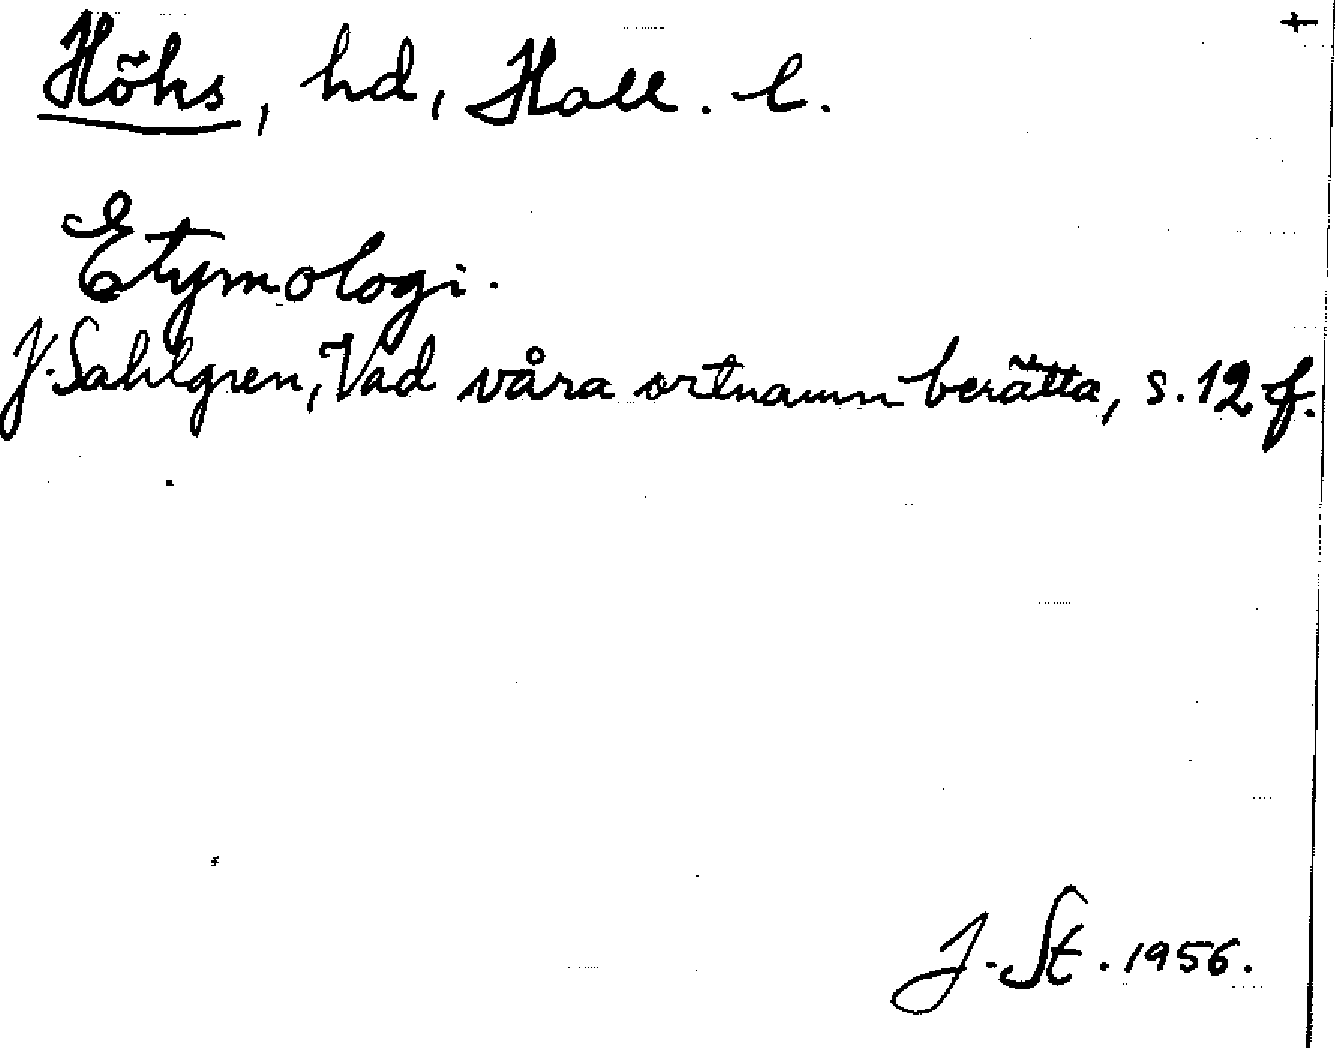 +
Höks, hd, Hall. l.
Etymologi.
J. Sahlgren, Vad våra ortnamn berätta, s. 12 f.
J. St. 1956.